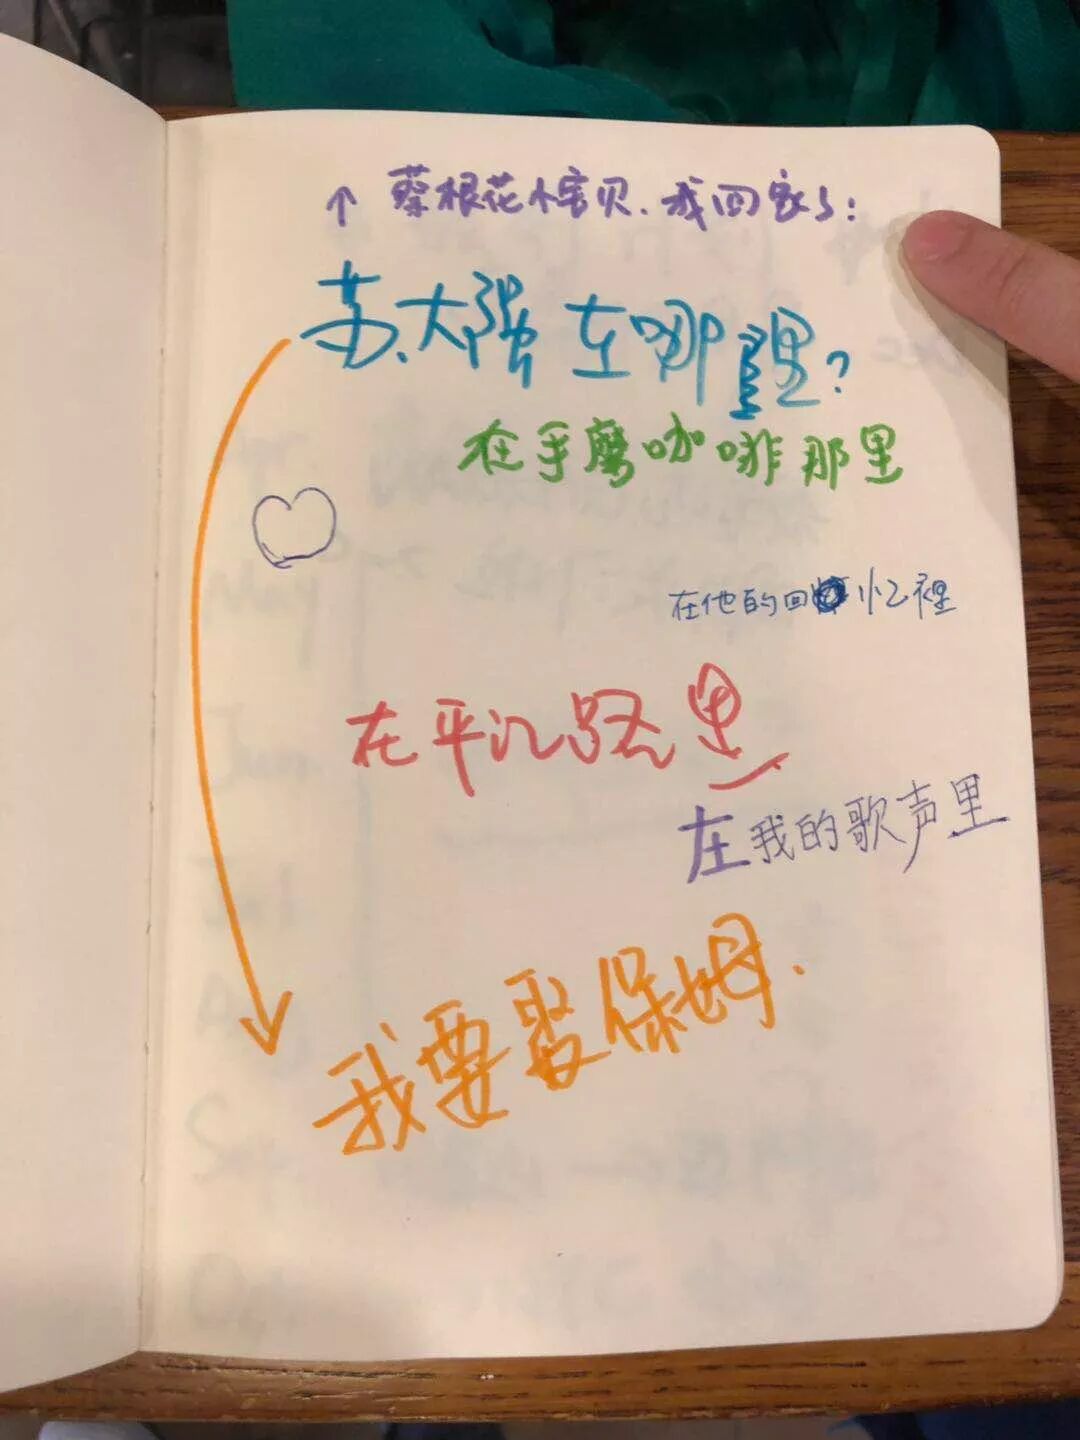 ↑ 蔡根花小宝贝.我回家了:
苏大强在哪里?
在手磨咖啡那里
在他的回忆裡
在平江路里
在我的歌声里
我要娶保姆.